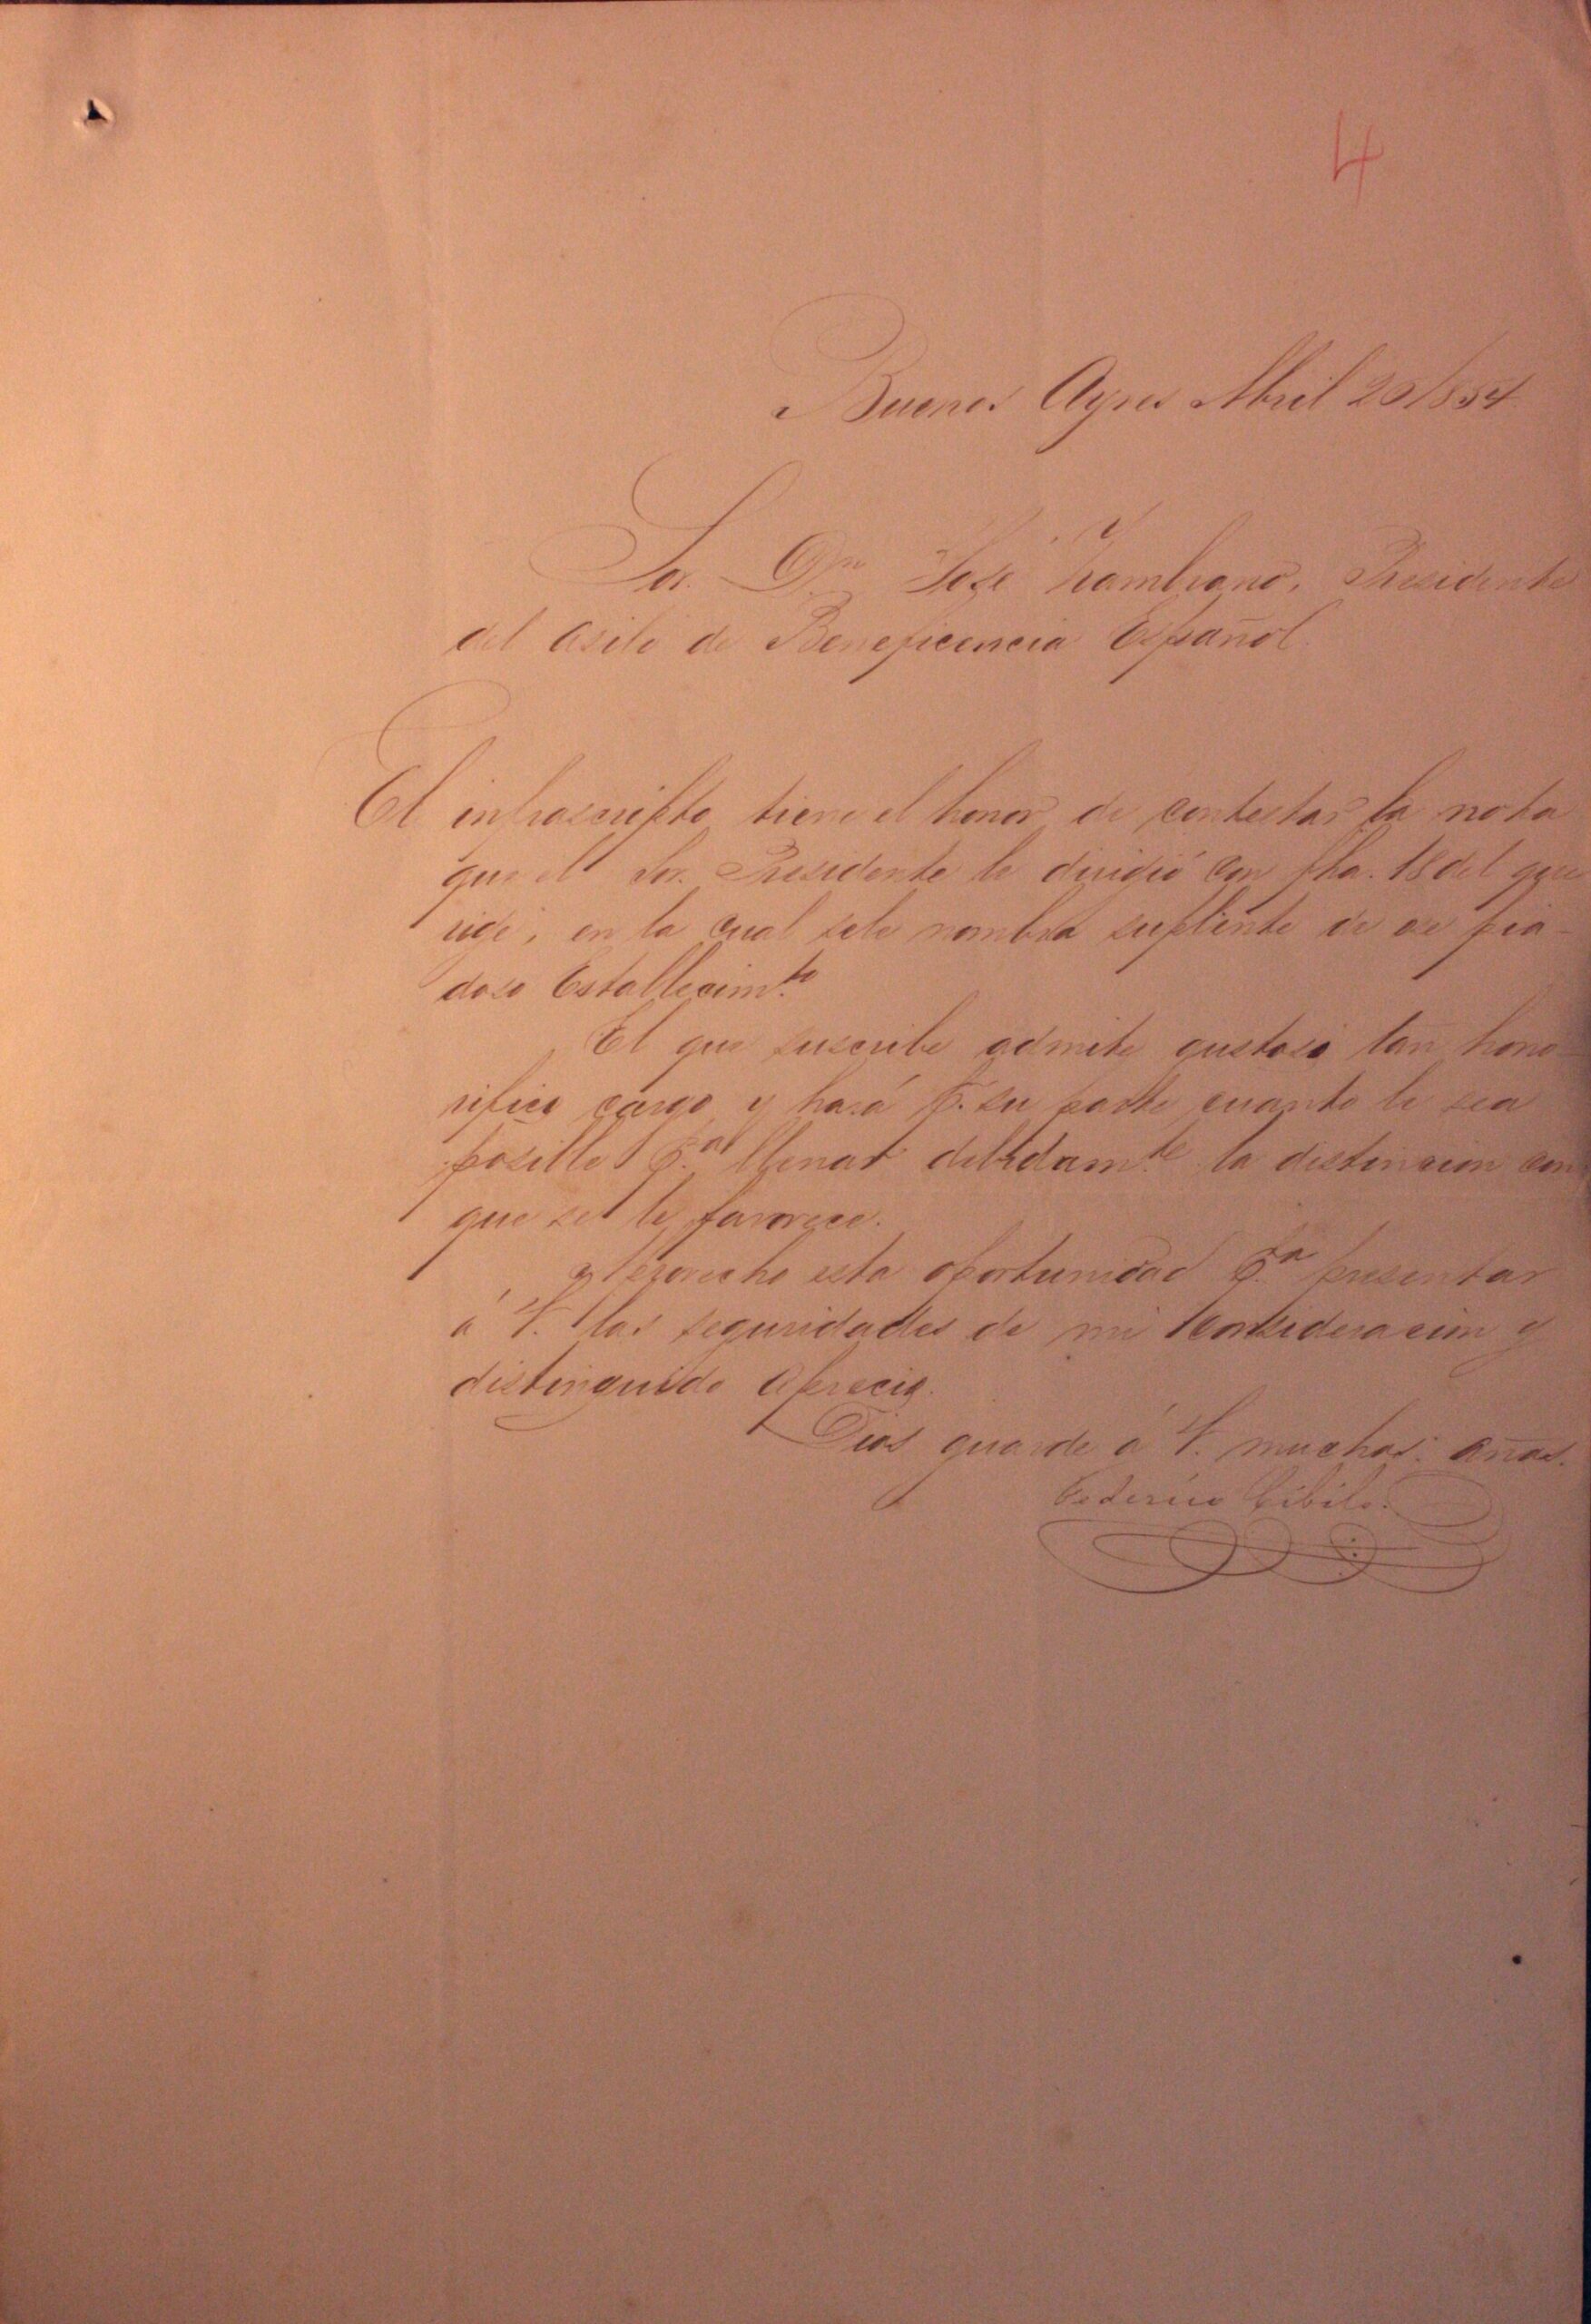 4
Buenos Ayres Abril 20/854
Sor. Dn José Zambrano, Presidente
del Asilo de Beneficencia Español.
El infroscripto tiene el honor de contestar la nota
que el Sor. Presidente le dirigió con fha. 18 del que
rige, en la cual sele nombra suplente de ese pia-
doso Establecimto
El que suscribe admite gustoso tan hono-
rifico cargo y hará p. su parte cuanto le sea
posible p.a llenar debidam.te la distincion con
que se le favorece.
Aprovecho esta oportunidad p.a presentar
á V. las seguridades de mi consideracion y
distinguido aprecio.
Dios guarde á V. muchos años.
Federico Cibils.